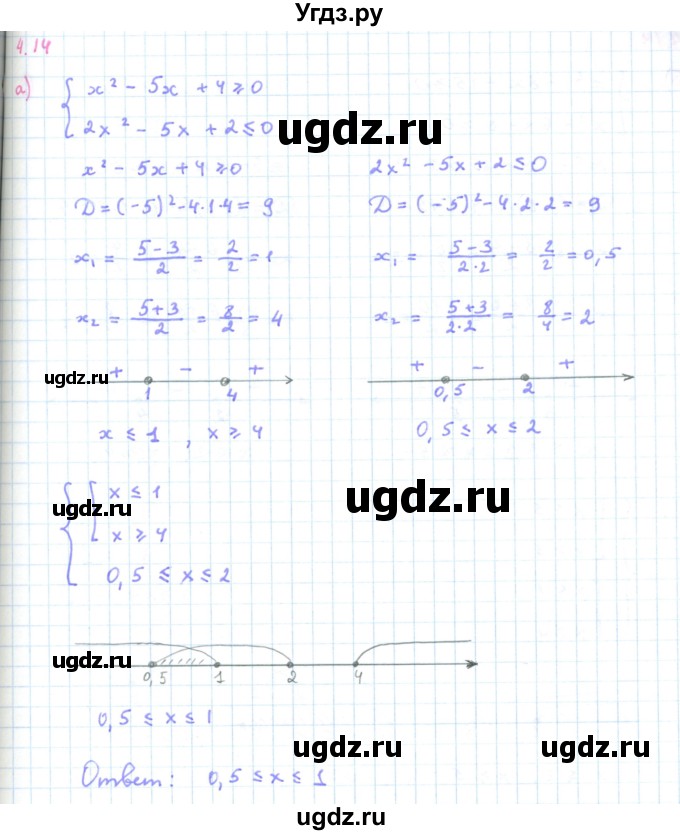 Угдз.ру
4.14
а) { x² - 5x + 4 ≥ 0
2x² - 5x + 2 ≤ 0
ugdz.ru
x² - 5x + 4 ≥ 0
D = (-5)² - 4·1·4 = 9
x₁ = (5-3)/2 = 2/2 = 1
x₂ = (5+3)/2 = 8/2 = 4
+ - +
1 4
x ≤ 1 , x ≥ 4
2x² - 5x + 2 ≤ 0
D = (-5)² - 4·2·2 = 9
x₁ = (5-3)/(2·2) = 2/2 = 0,5
x₂ = (5+3)/(2·2) = 8/4 = 2
+ - +
0,5 2
0,5 ≤ x ≤ 2
ugdz.ru
ugdz.ru
ugdz.ru
{ [ x ≤ 1
x ≥ 4
0,5 ≤ x ≤ 2
ugdz.ru
ugdz.ru
ugdz.ru
0,5 1 2 4
0,5 ≤ x ≤ 1
ugdz.ru
ugdz.ru
Ответ: 0,5 ≤ x ≤ 1
ugdz.ru
ugdz.ru